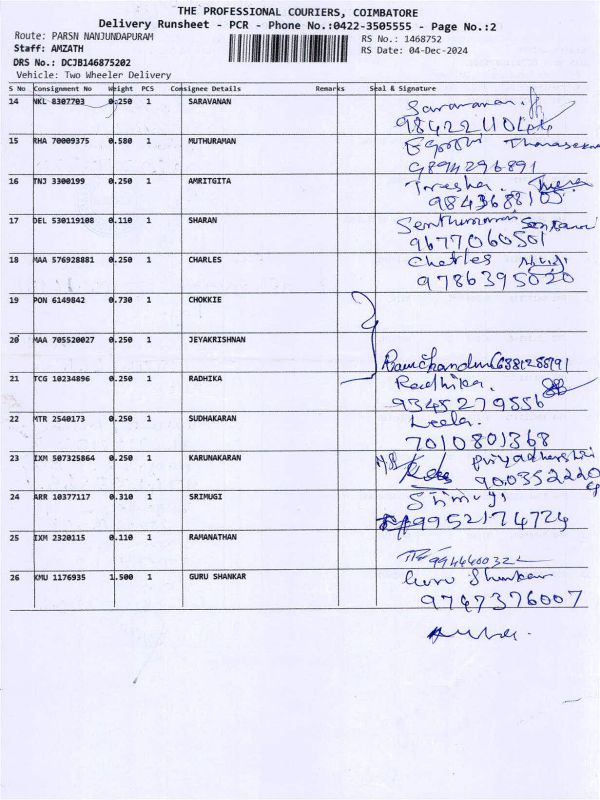 THE PROFESSIONAL COURIERS, COIMBATORE
Delivery Runsheet - PCR - Phone No.:0422-3505555 - Page No.:2
Route: PARSN NANJUNDAPURAM
RS No.: 1468752
Staff: AMZATH
RS Date: 04-Dec-2024
DRS No.: DCJB146875202
Vehicle: Two Wheeler Delivery
S No Consignment No Weight PCS Consignee Details Remarks Seal & Signature
14 NKL 8307703 0.250 1 SARAVANAN Saravanan.
15 RHA 70009375 0.580 1 MUTHURAMAN
9894296891
16 TNJ 3300199 0.250 1 AMRITGITA
17 DEL 530119108 0.110 1 SHARAN
9677060501
18 MAA 576928881 0.250 1 CHARLES Charles
9786395020
19 PON 6149842 0.730 1 CHOKKIE
20 MAA 705520027 0.250 1 JEYAKRISHNAN
21 TCG 10234896 0.250 1 RADHIKA Radhika.
9345279556
22 MTR 2540173 0.250 1 SUDHAKARAN Leela.
7010801368
23 IXM 507325864 0.250 1 KARUNAKARAN
900352220
24 ARR 10377117 0.310 1 SRIMUGI Srimugi
9952174724
25 IXM 2320115 0.110 1 RAMANATHAN
26 KMU 1176935 1.500 1 GURU SHANKAR Guru Shankar
9747376007